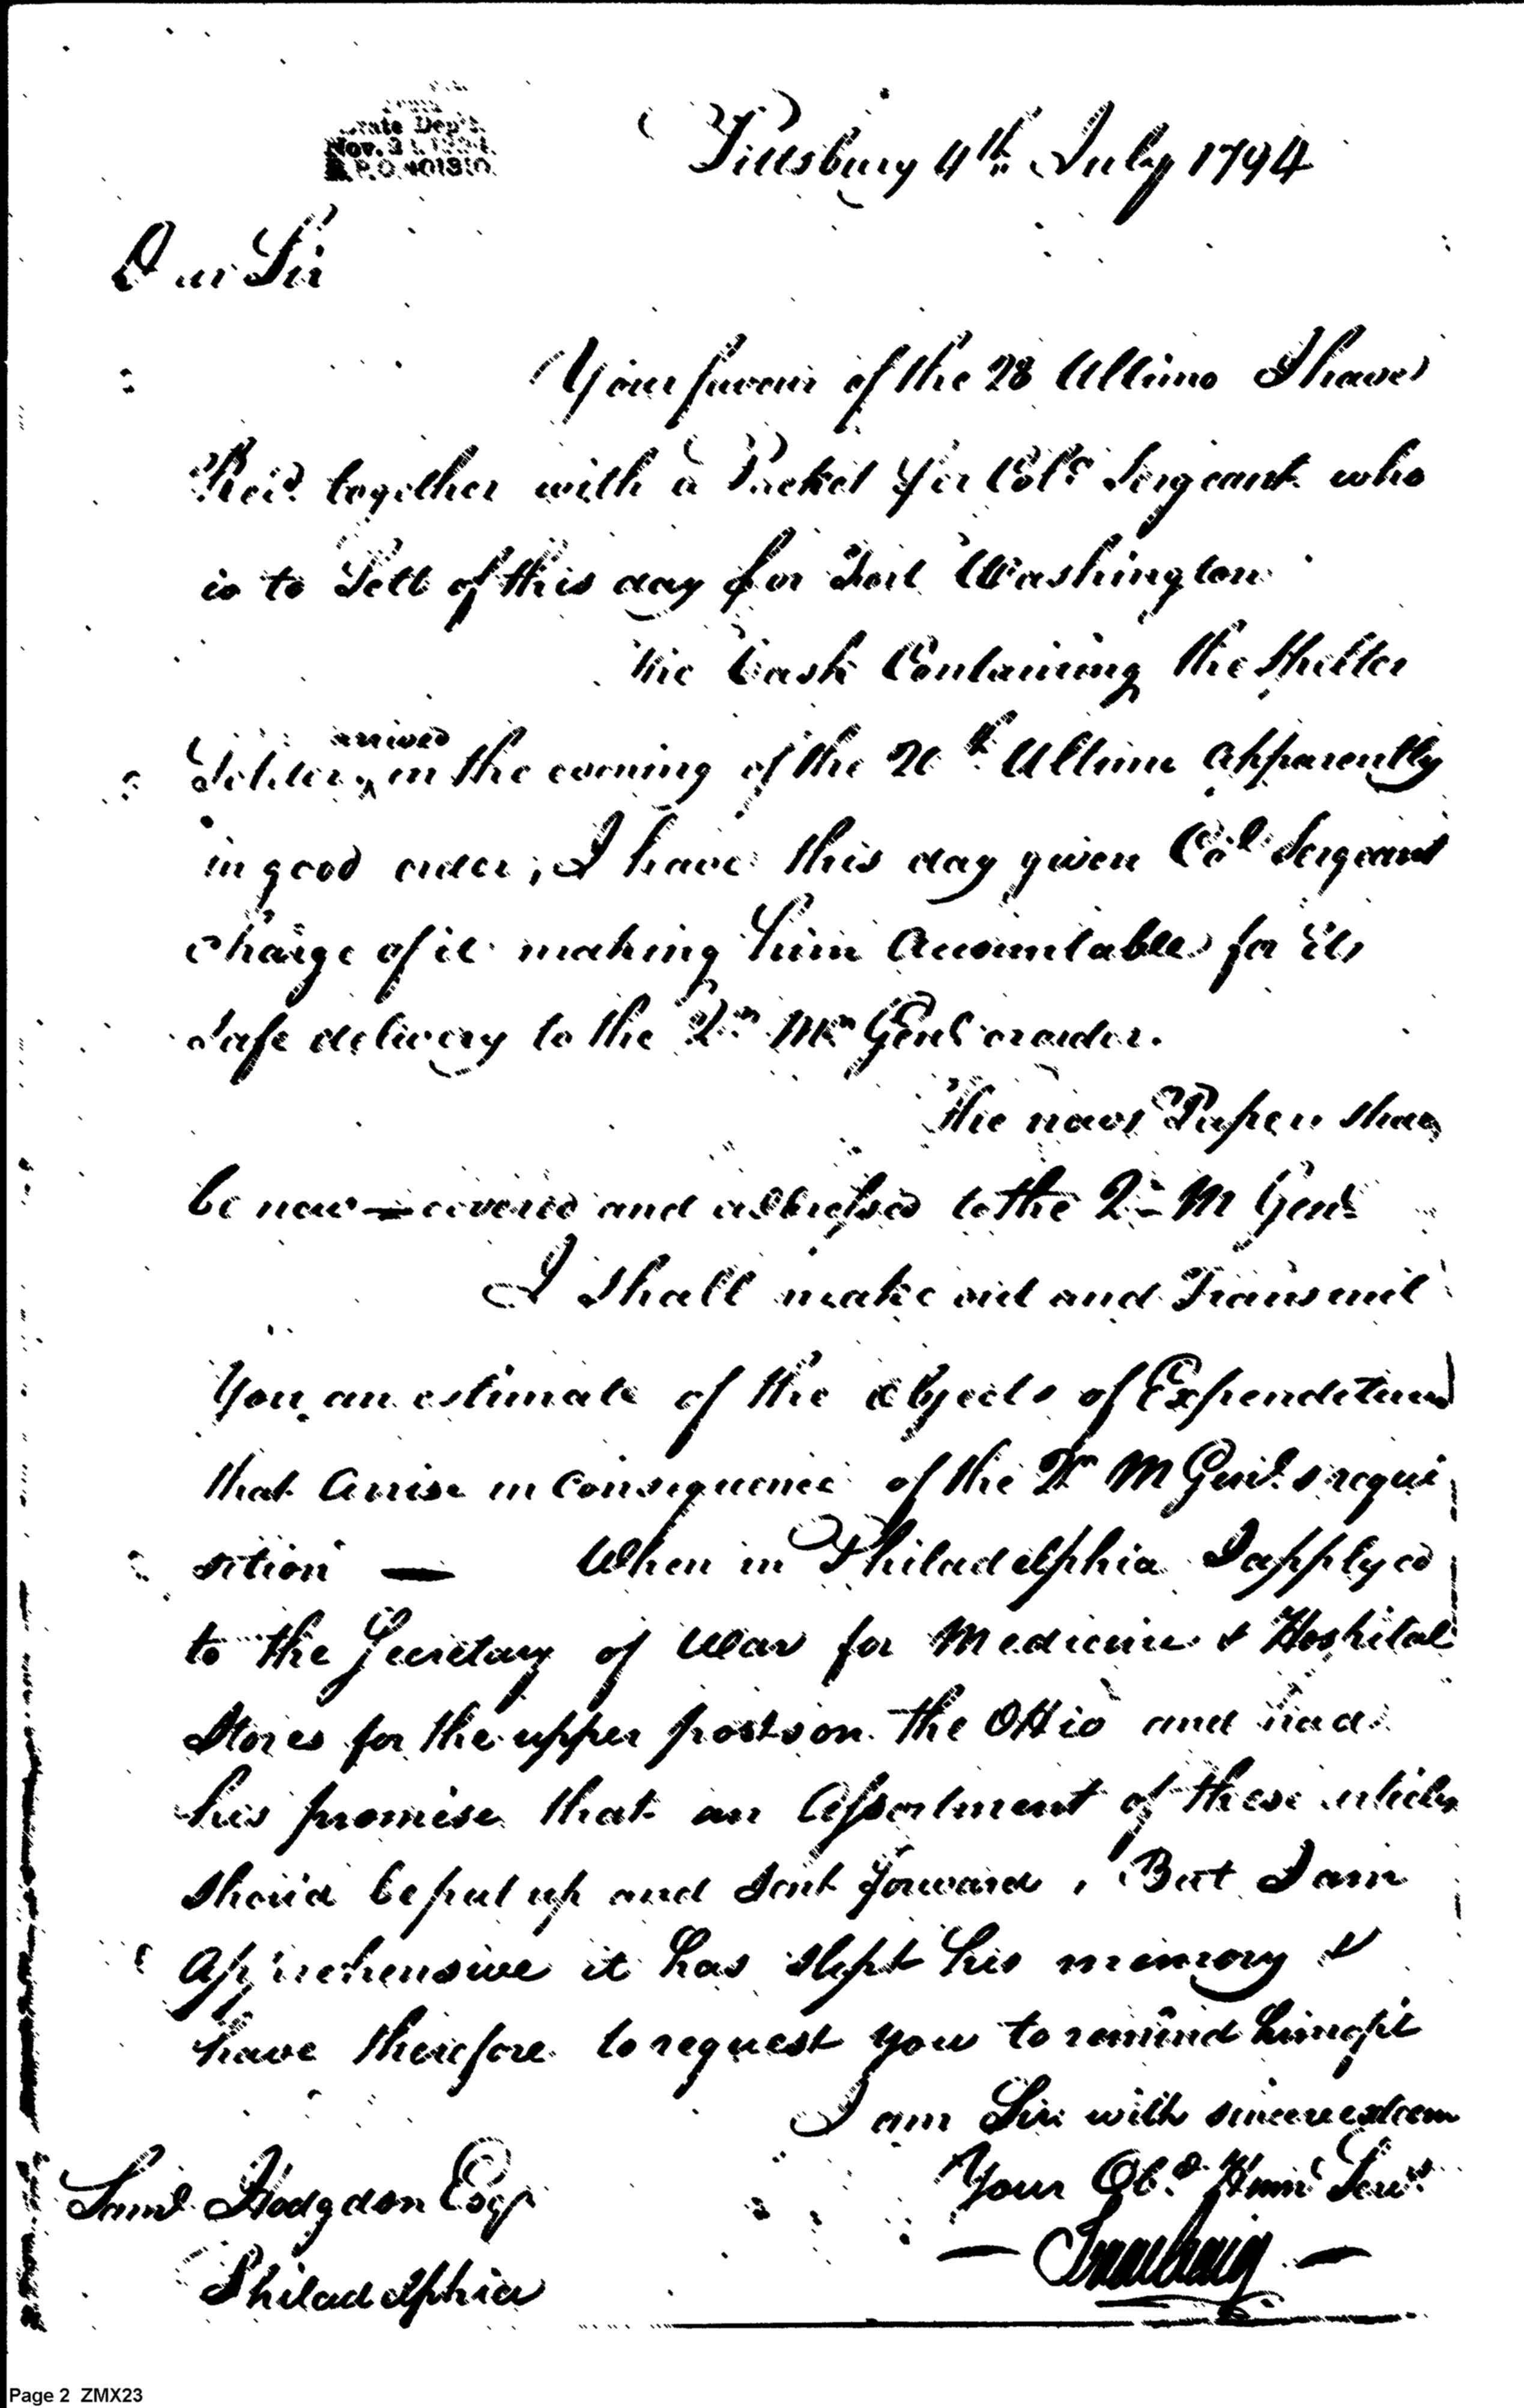 State Dep't.
Nov. 21
P.O. 401310
Pittsburg 4th July 1794
Dear Sir
Your favour of the 28 Ultimo I have
Recd. together with a Packet for Colo Sergeant who
is to Sett of this day for Fort Washington
The Cask Containing the Shelter
arrived
on the evening of the 20th Ultimo apparently
in good order, I have this day given Col Sergeant
Charge of it making him Accountable for its
safe delivery to the Qr Mr Genl or order.
The news Papers shall
be new — covered and addressed to the Q M Genl
I shall make out and Transmit
You an estimate of the objects of Expenditure
that Arrise in Consequence of the Qr M Genl.s requi
sition — When in Philadelphia I applyed
to the Secretary of War for Medicine & Hospital
Stores for the upper posts on the Ohio and had
his promise that an Assortment of these articles
should be put up and sent forward, But I am
Apprehensive it has slept his memory &
have therefore to request you to remind him of it
I am Sir with sincere esteem
Your Obd. Humb Servt.
Saml Hodgdon Esqr
Isaac Craig
Philadelphia
Page 2 ZMX23